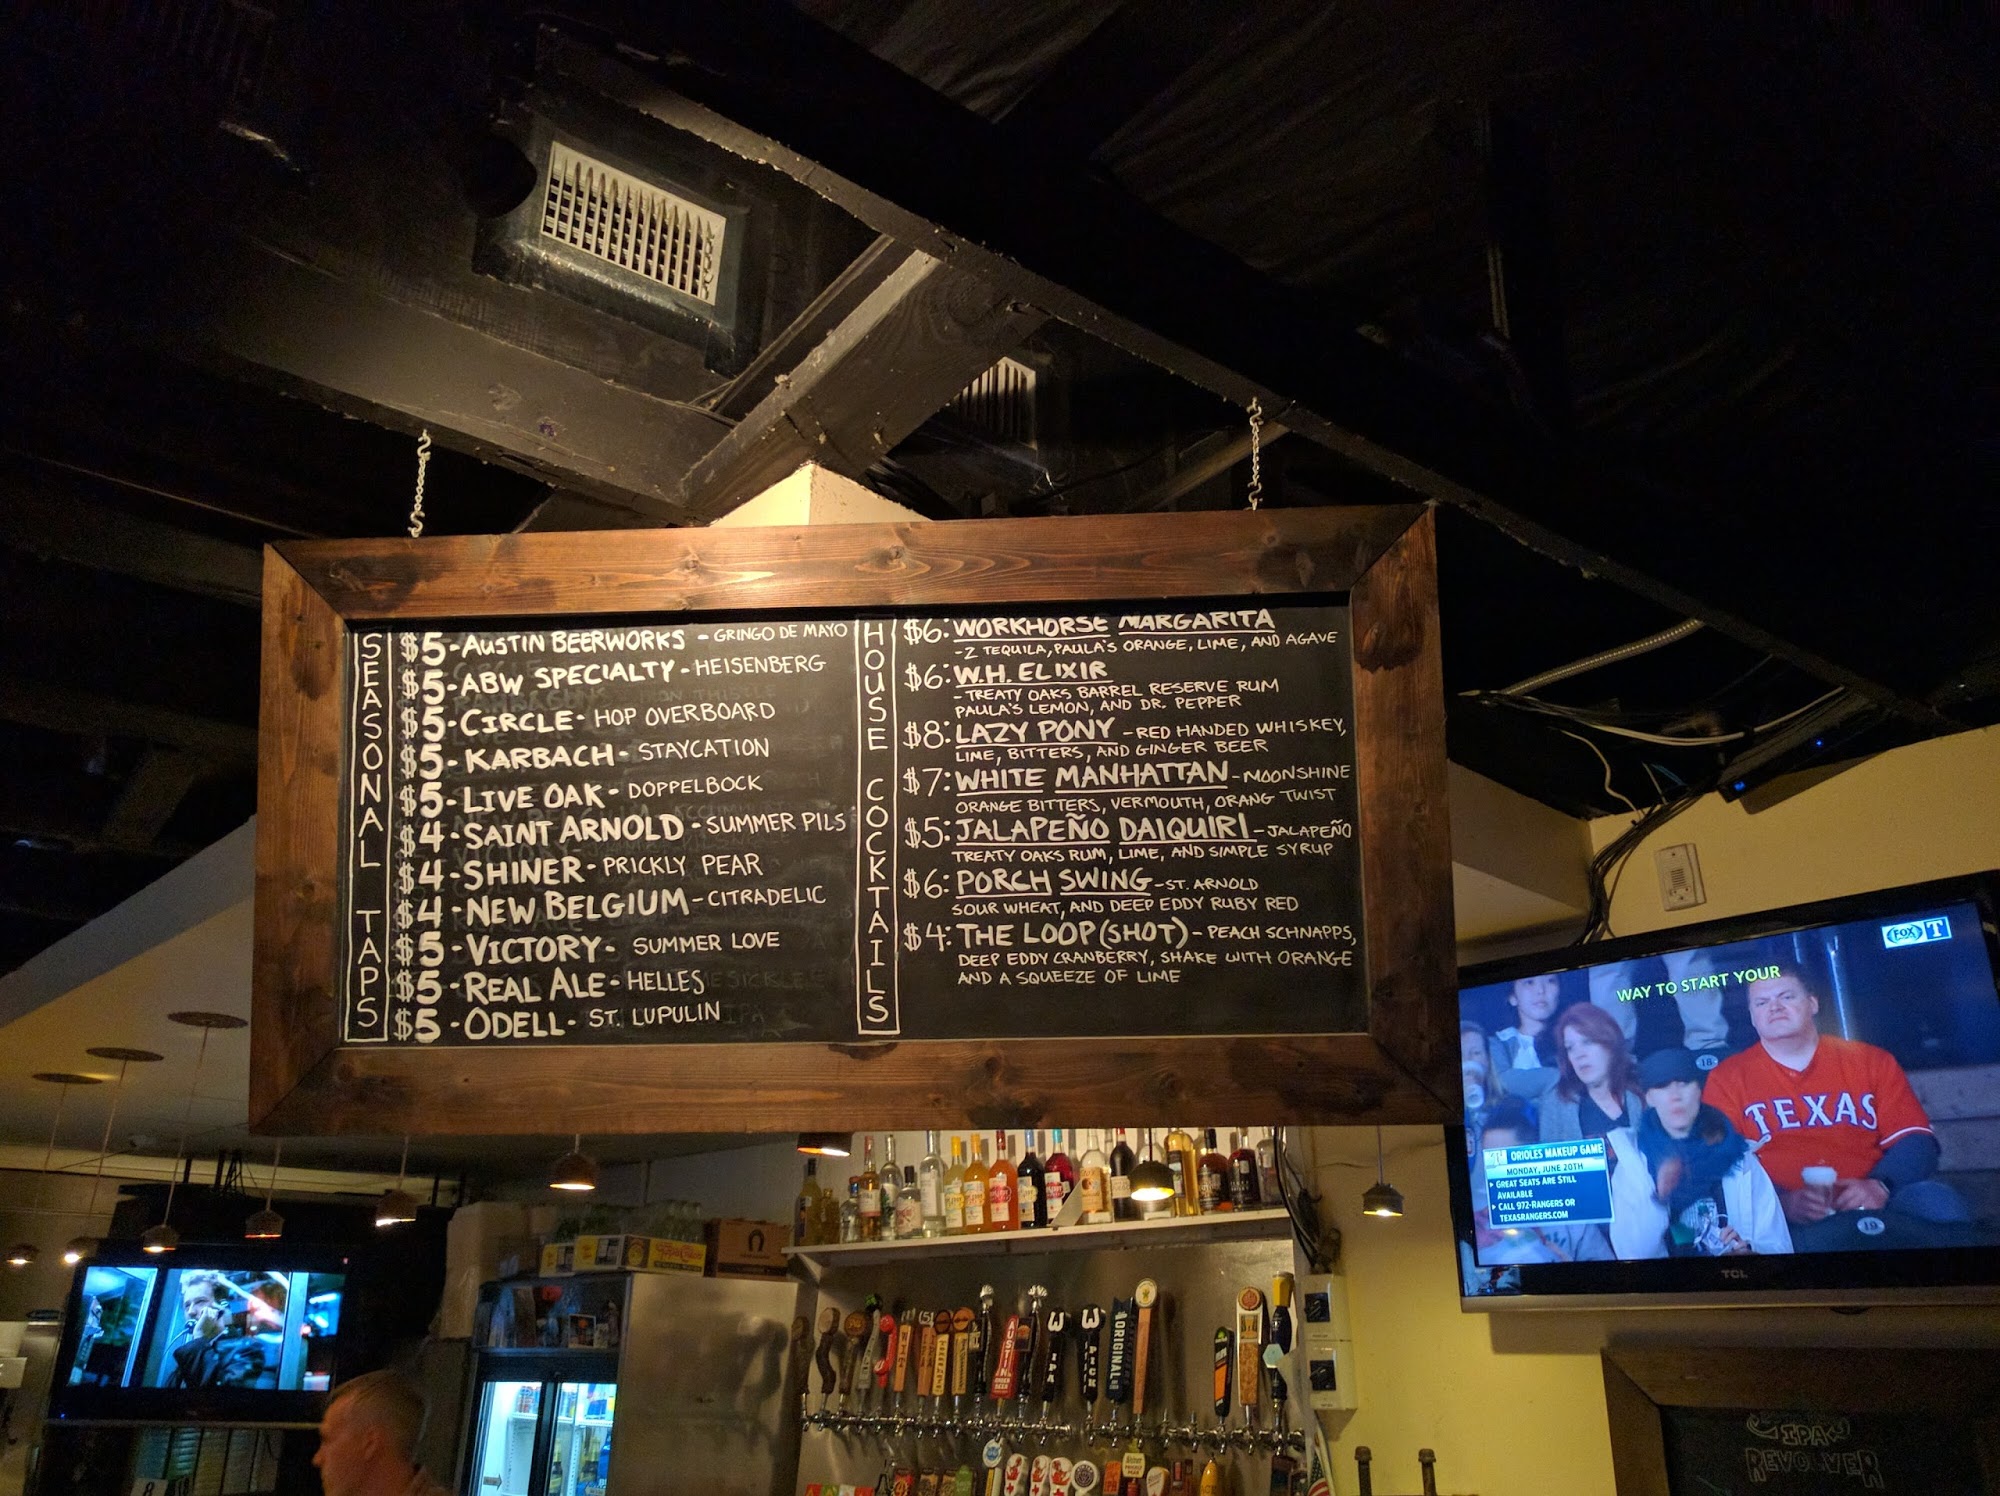 SEASONAL TAPS
$5-AUSTIN BEERWORKS - GRINGO DE MAYO
$5-ABW SPECIALTY-HEISENBERG
$5-CIRCLE-HOP OVERBOARD
$5-KARBACH-STAYCATION
$5-LIVE OAK-DOPPELBOCK
$4-SAINT ARNOLD-SUMMER PILS
$4-SHINER-PRICKLY PEAR
$4-NEW BELGIUM-CITRADELIC
$5-VICTORY- SUMMER LOVE
$5-REAL ALE-HELLES
$5-ODELL- ST. LUPULIN
HOUSE COCKTAILS
$6: WORKHORSE MARGARITA
-Z TEQUILA, PAULA'S ORANGE, LIME, AND AGAVE
$6: W.H. ELIXIR
-TREATY OAKS BARREL RESERVE RUM
PAULA'S LEMON, AND DR. PEPPER
$8: LAZY PONY -RED HANDED WHISKEY,
LIME, BITTERS, AND GINGER BEER
$7: WHITE MANHATTAN-MOONSHINE
ORANGE BITTERS, VERMOUTH, ORANG TWIST
$5: JALAPEÑO DAIQUIRI-JALAPEÑO
TREATY OAKS RUM, LIME, AND SIMPLE SYRUP
$6: PORCH SWING-ST. ARNOLD
SOUR WHEAT, AND DEEP EDDY RUBY RED
$4: THE LOOP(SHOT)- PEACH SCHNAPPS,
DEEP EDDY CRANBERRY, SHAKE WITH ORANGE
AND A SQUEEZE OF LIME
FOX
T
WAY TO START YOUR
18
TEXAS
ORIOLES MAKEUP GAME
MONDAY, JUNE 20TH
GREAT SEATS ARE STILL
AVAILABLE
CALL 972-RANGERS OR
TEXASRANGERS.COM
19
TCL
AUSTIN
W
IPA
W
PICK
ORIGINAL
IPA
REVOLVER